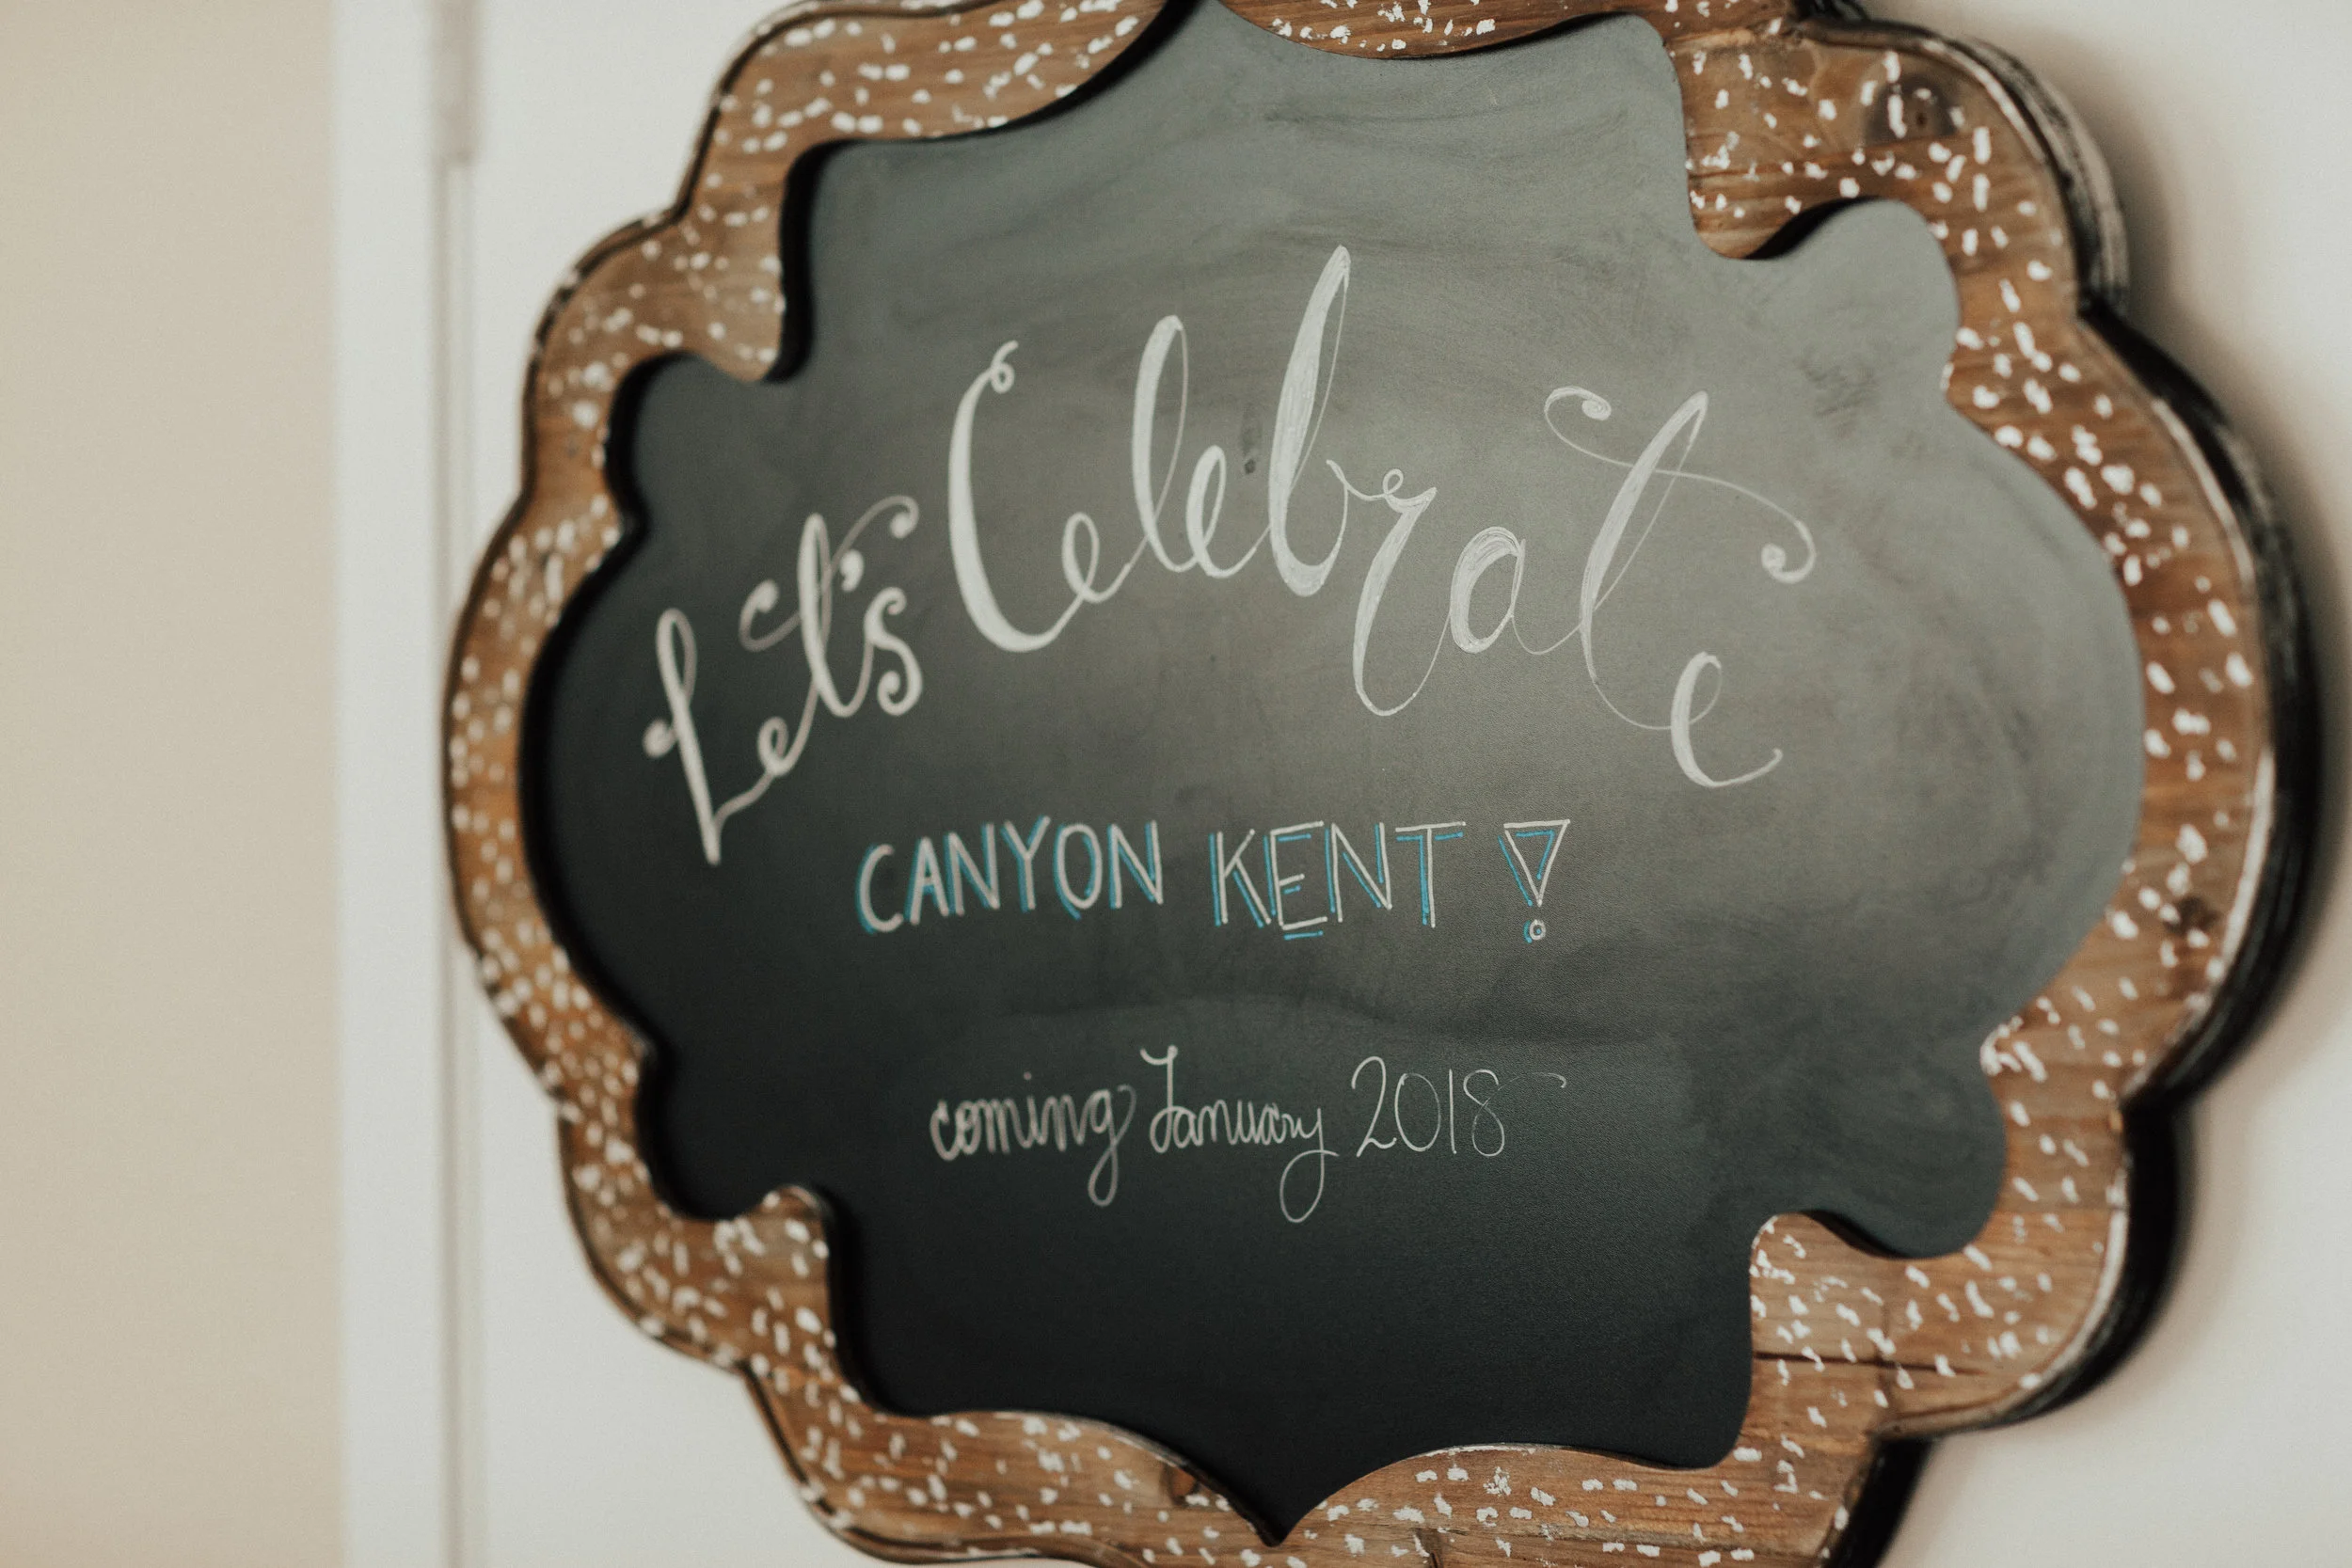 Let's Celebrate
CANYON KENT!
coming January 2018